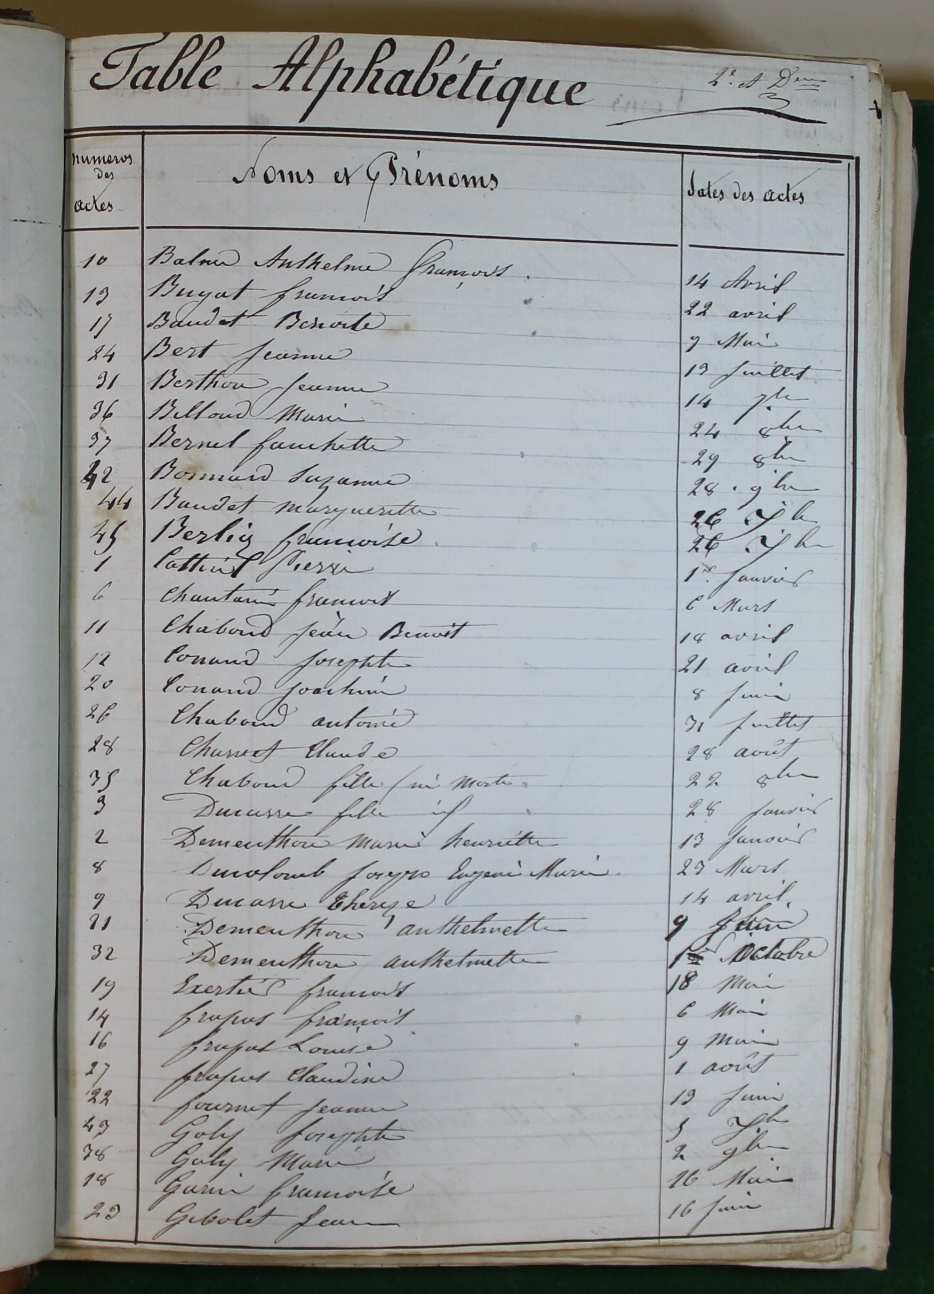 Table Alphabétique
numeros des actes
Noms et Prénoms
dates des actes
10 Balme Anthelme françois 14 Avril
13 Bugat françois 22 avril
17 Baudet Benoite 9 Mai
24 Bert Jeanne 13 Juillet
31 Berthon Jeanne 14 7bre
36 Billoud Marie 24 8bre
37 Bernel fanchette 29 8bre
42 Bonnard Suzanne 28 9bre
44 Baudet Marguerite 26 Xbre
45 Berlig françoise 26 Xbre
1 Pierre 1er Janvier
6 françois 6 Mars
11 Chaboud Jean Benoit 18 avril
12 Conand Josephte 21 avril
20 Conand Joachim 8 Juin
26 Chaboud antoine 31 Juillet
28 Charvet Claude 28 août
35 Chaboud fille né morte 22 8bre
3 Ducasse fille id 28 Janvier
2 Dementhon Marie henriette 13 Janvier
8 Ducolomb Joseph Eugène Marie 23 Mars
9 Ducasse Therese 14 avril
21 Dementhon anthelmette 9 Juin
32 Dementhon anthelmette 1er Octobre
19 Exertier françois 18 Mai
14 françois 6 Mai
16 Louise 9 Mai
27 Claudine 1 août
22 fournet Jeanne 13 Juin
43 Goly Josephte 5 Xbre
38 Goly Marie 2 9bre
18 Garin françoise 16 Mai
23 Gibolet Jean 16 Juin